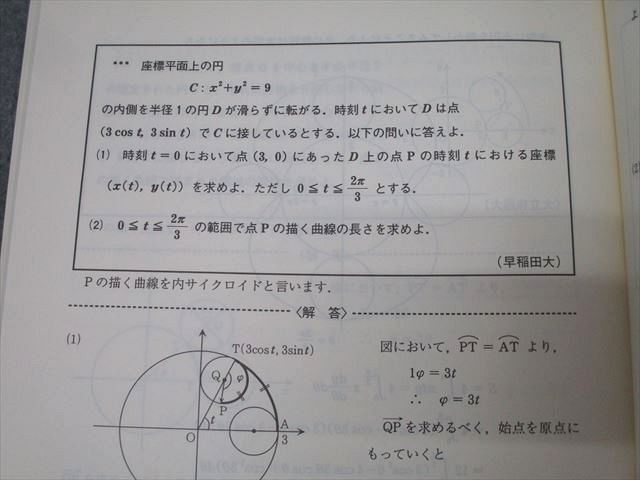 *** 座標平面上の円
C : x²+y²=9
の内側を半径1の円Dが滑らずに転がる.時刻tにおいてDは点
(3 cos t, 3 sin t) でCに接しているとする.以下の問いに答えよ.
(1) 時刻t=0において点(3, 0)にあったD上の点Pの時刻tにおける座標
(x(t), y(t))を求めよ.ただし 0≦t≦2π/3 とする.
(2) 0≦t≦2π/3 の範囲で点Pの描く曲線の長さを求めよ.
(早稲田大)
Pの描く曲線を内サイクロイドと言います.
〈解 答〉
(1)
T(3cost, 3sint)
Q
φ
P
t
O
A
3
図において,PT=AT より,
1φ=3t
∴ φ=3t
QPを求めるべく,始点を原点に
もっていくと